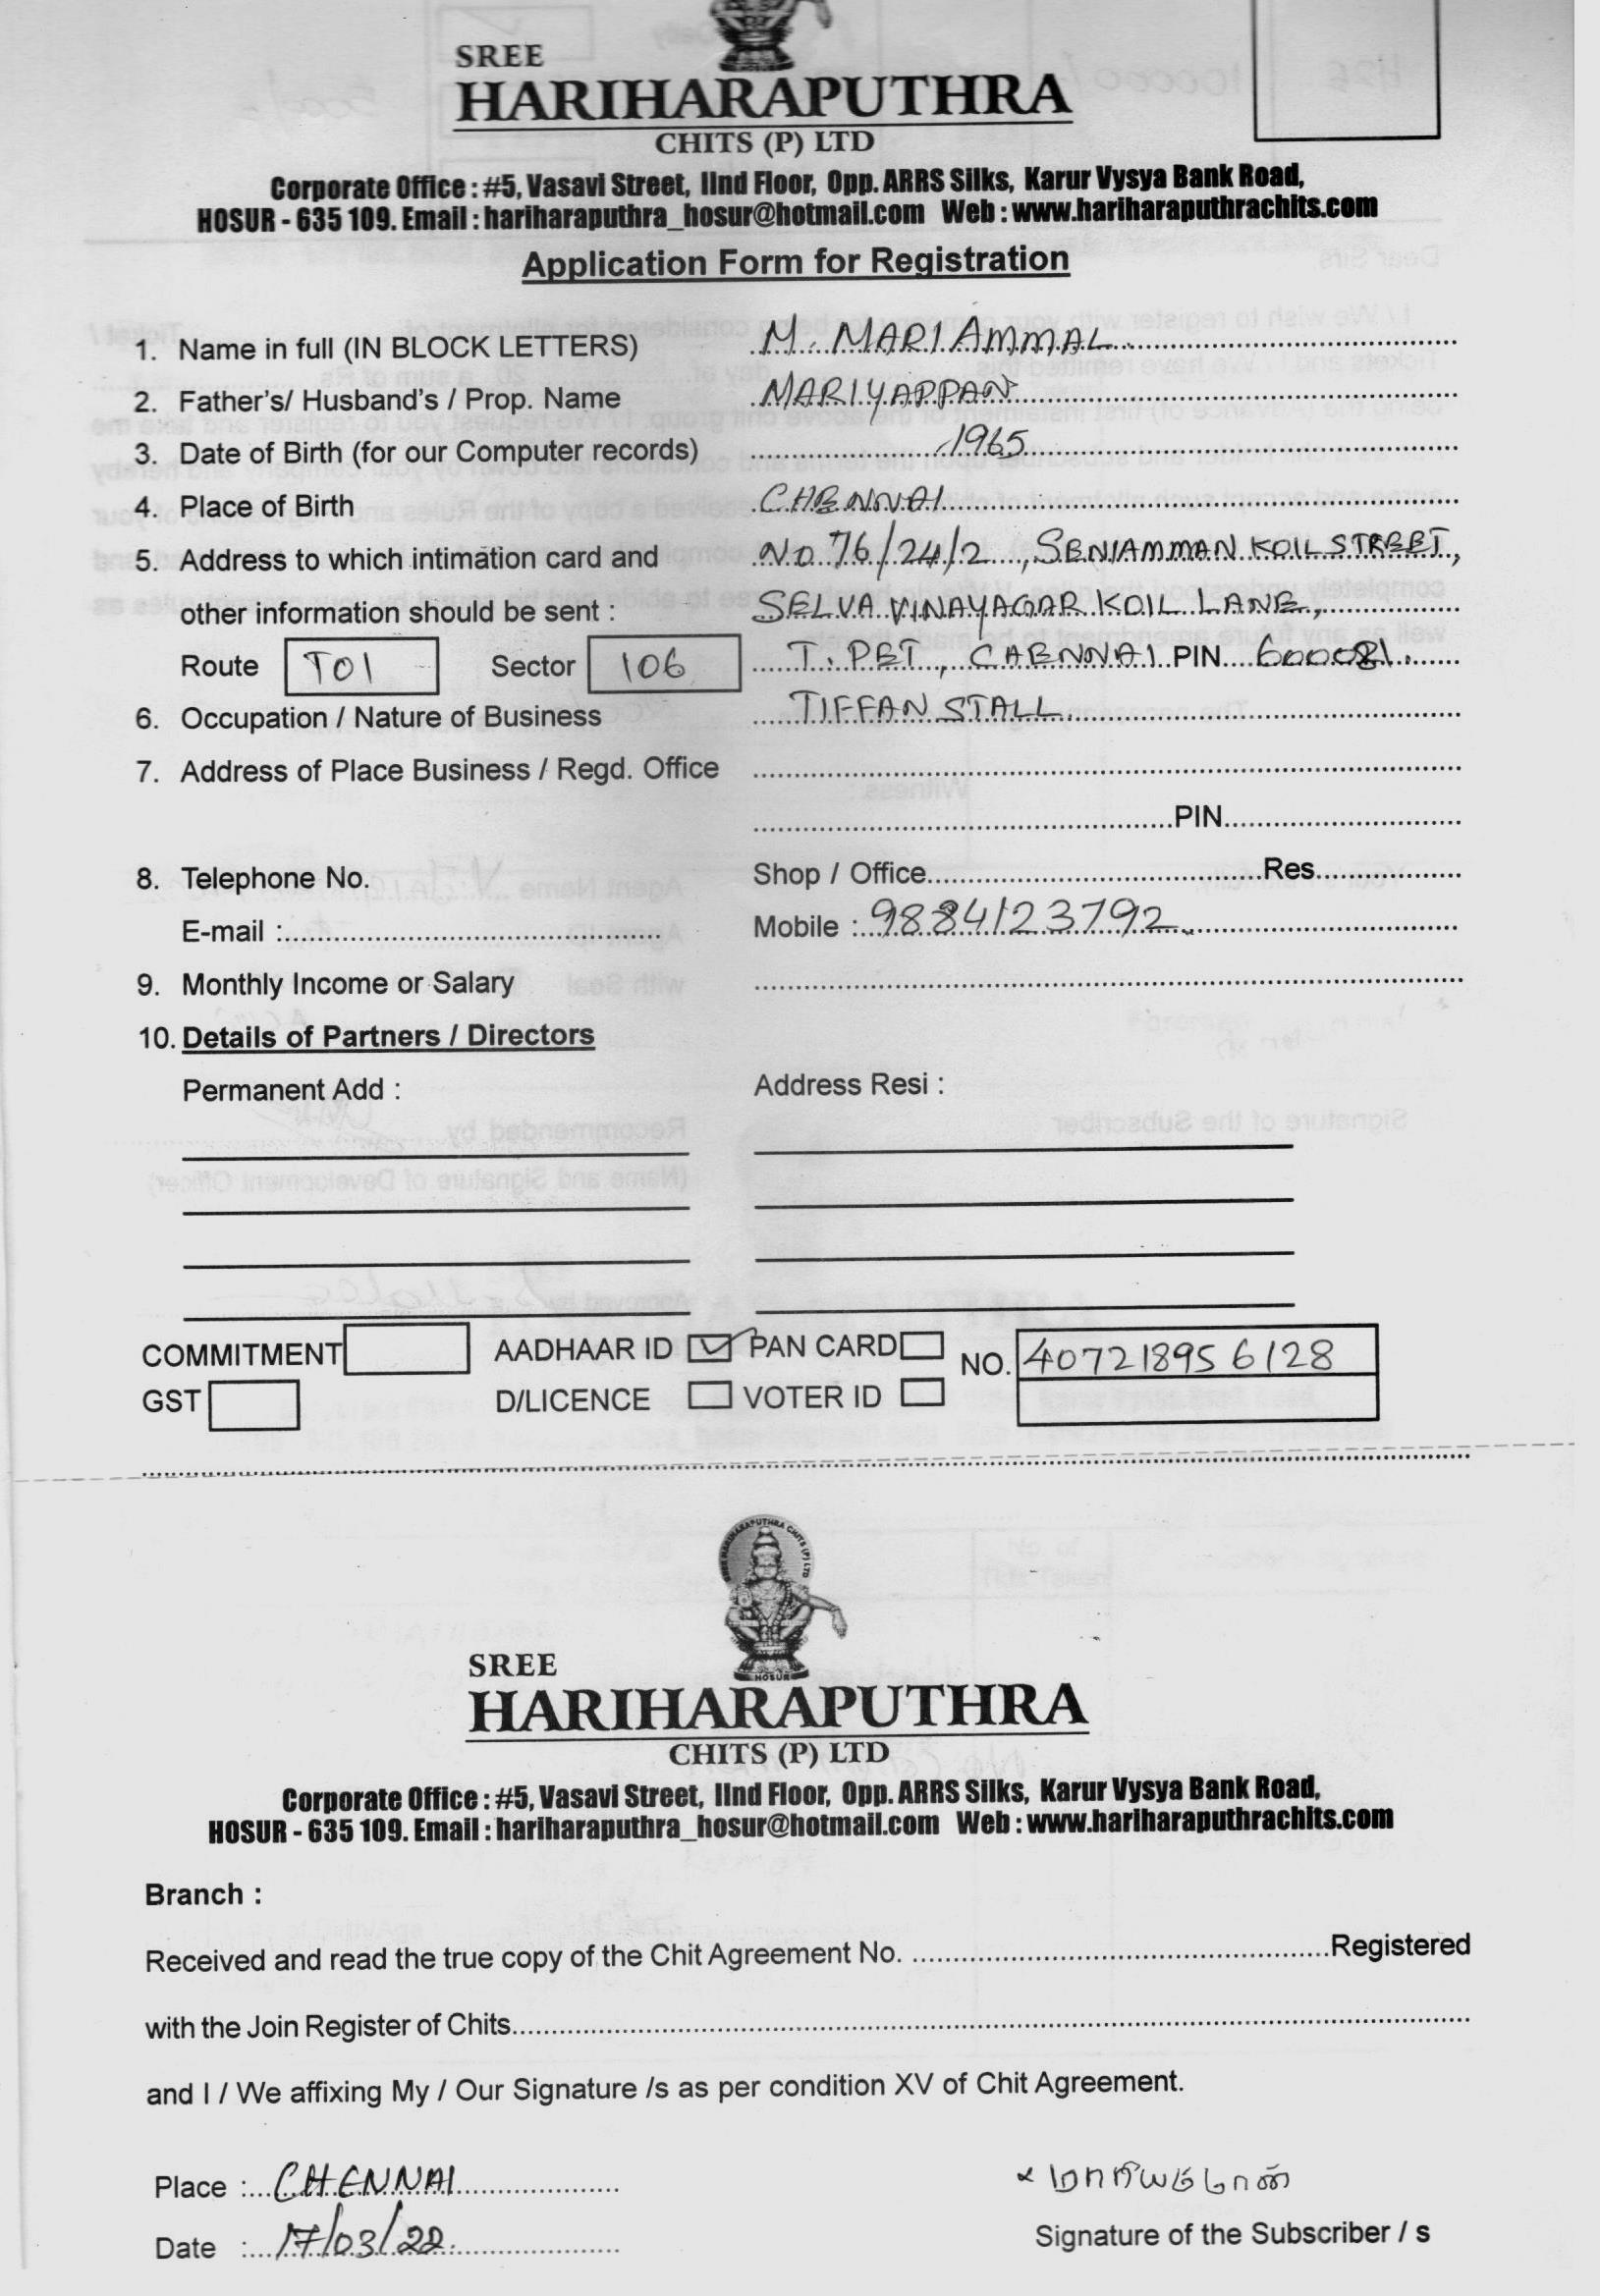 SREE
HARIHARAPUTHRA
CHITS (P) LTD
Corporate Office : #5, Vasavi Street, IInd Floor, Opp. ARRS Silks, Karur Vysya Bank Road,
HOSUR - 635 109. Email : hariharaputhra_hosur@hotmail.com Web : www.hariharaputhrachits.com
Application Form for Registration
1. Name in full (IN BLOCK LETTERS) M. MARIAMMAL
2. Father's/ Husband's / Prop. Name MARIYAPPAN
3. Date of Birth (for our Computer records) 1965
4. Place of Birth CHENNAI
5. Address to which intimation card and NO 76/24/2, SENIAMMAN KOIL STREET,
other information should be sent : SELVA VINAYAGAR KOIL LANE,
Route T01 Sector 106 T. PET, CHENNAI PIN 600081.
6. Occupation / Nature of Business TIFFAN STALL
7. Address of Place Business / Regd. Office
PIN
8. Telephone No. Shop / Office Res.
E-mail : Mobile : 9884123792
9. Monthly Income or Salary
10. Details of Partners / Directors
Permanent Add : Address Resi :
COMMITMENT AADHAAR ID PAN CARD NO. 407218956128
GST D/LICENCE VOTER ID
SREE HARIHARAPUTHRA CHITS (P) LTD
HOSUR
SREE
HARIHARAPUTHRA
CHITS (P) LTD
Corporate Office : #5, Vasavi Street, IInd Floor, Opp. ARRS Silks, Karur Vysya Bank Road,
HOSUR - 635 109. Email : hariharaputhra_hosur@hotmail.com Web : www.hariharaputhrachits.com
Branch :
Received and read the true copy of the Chit Agreement No. Registered
with the Join Register of Chits
and I / We affixing My / Our Signature /s as per condition XV of Chit Agreement.
Place : CHENNAI
Date : 17/03/22
Signature of the Subscriber / s